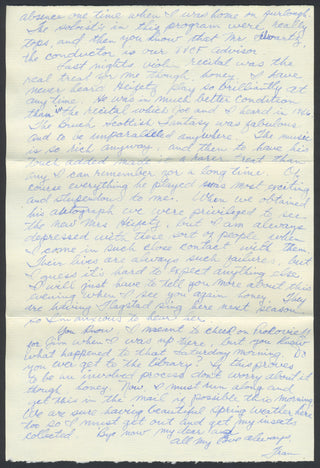 absence one time when I was home on furlough.
The soloists in this program were really
tops, and then you know that Mr. Swartz,
the conductor is our IVCF advisor.
Last nights violin recital was the
real treat for me though, honey. I have
never heard Heifetz play so brilliantly at
any time. He was in much better condition
than the recital which you and I heard in '46.
The Bruch Scottish Fantasy was fabulous
and to be unparalelled anywhere. The music
is so rich anyway, and then to have his
touch added made it a rarer treat than
any I can remember for a long time. Of
course everything he played was most exciting
and stupendous to me. When we obtained
his autograph we were privileged to see
the new Mrs Heifetz, but I am always
depressed with these sort of people when
I come in such close contact with them.
Their lives are always such failures, but
I guess it's hard to expect anything else.
I will just have to tell you more about this
evening when I see you again honey. They
are having Flagstad sing here next season
so I'm anxious to hear her.
You know I meant to check on
for Jim when I was up there, but you know
what happened to that Saturday morning. Do
you ever get to the library? If this proves
to be an involved process don't worry about it
though honey. Now, I must run along and
get this in the mail if possible this morning.
We are sure having beautiful spring weather here
too so I must get out and get my insects
collected. Bye now my dear and
all my love always,